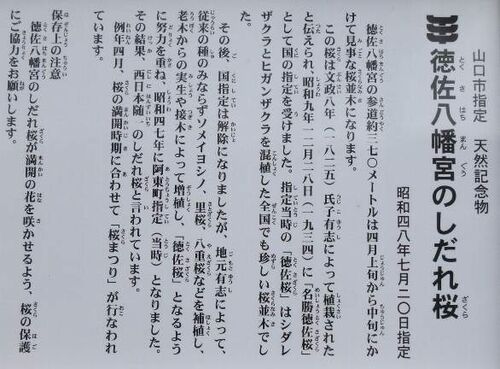 山口市指定　天然記念物
徳佐八幡宮のしだれ桜
昭和四八年七月二〇日指定
徳佐八幡宮の参道約三七〇メートルは四月上旬から中旬にか
けて見事な桜並木になります。
この桜は文政八年（一八二五）氏子有志によって植栽された
と伝えられ、昭和九年一二月二八日（一九三四）に「名勝徳佐桜」
として国の指定を受けました。指定当時の「徳佐桜」はシダレ
ザクラとヒガンザクラを混植した全国でも珍しい桜並木でし
た。
その後、国指定は解除になりましたが、地元有志によって、
従来の種のみならずソメイヨシノ、里桜、八重桜などを補植し、
老木からの実生や接木によって増植し、「徳佐桜」となるよう
に努力を重ね、昭和四七年に阿東町指定（当時）となりました。
その結果、西日本随一のしだれ桜と言われています。
例年四月、桜の満開時期に合わせて「桜まつり」が行なわれ
ています。
保存上の注意
徳佐八幡宮のしだれ桜が満開の花を咲かせるよう、桜の保護
にご協力をお願いします。